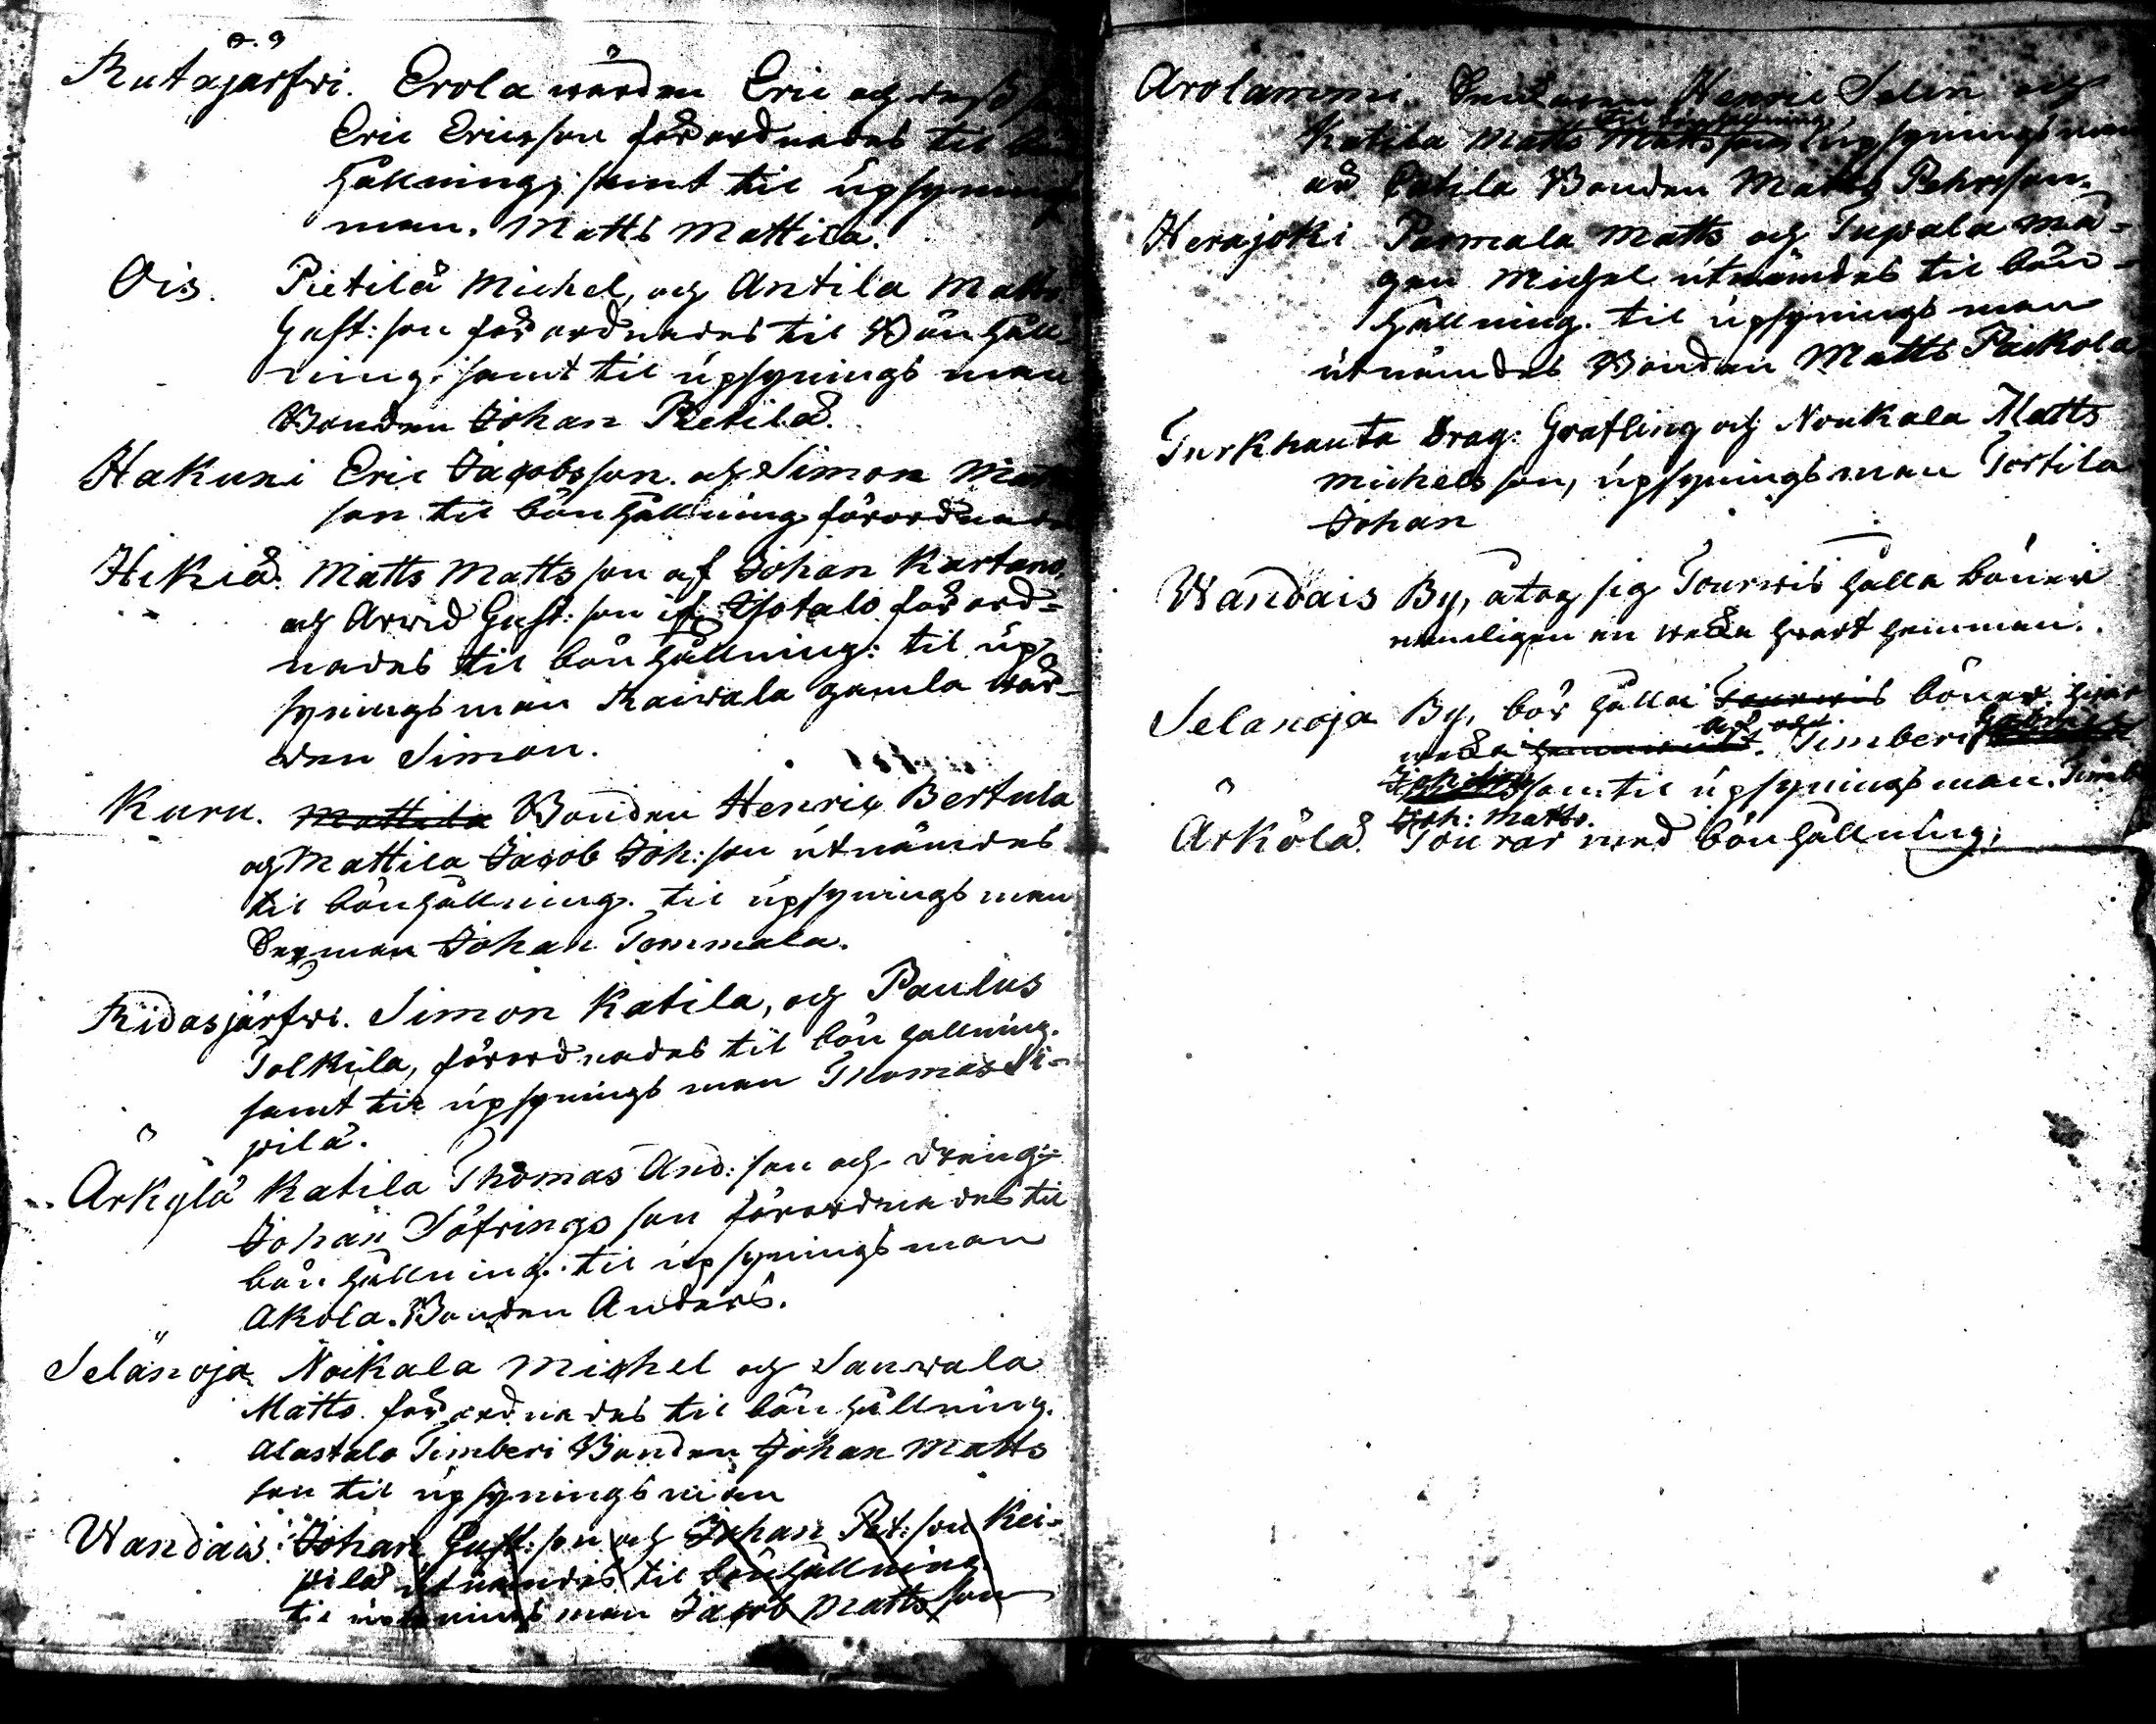 Rutajärfwi. Erola wärden Eric och dess
Eric Ericsson förordnades til bön
hållning, samt til upsynings
man. Matts Mattila.
Ois. Pietilä Michel, och Antila Matts
Gust: son förordnades til Bönhåll-
ning, samt til upsynings man
Bonden Johan Pietilä.
Hakuni Eric Jacobsson. och Simon Matts
son til bönhållning förordnades
Hikiä. Matts Mattsson af Johan Kartano,
och Arvid Gust: son if. Isotalo förord=
nades til bönhållning: til up
synings man Raiwala gamla wär-
den Simon.
Kuru. Mattila Bonden Henric Bertula
och Mattila Jacob Joh: son utnämdes
til bönhållning. til upsynings man
Sexman Johan Tommala.
Ridasjärfwi. Simon Katila, och Paulus
Tolkila, förordnades til bönhållning.
samt til upsynings man Thomas Si-
wilä.
Arkylä Katila Thomas And: son och dreng
Johan Söfrings son förordnades til
bönhållning. til upsynings man
Akola. Bonden Anders.
Selänoja Noikala Michel och Sanwala
Matts. förordnades til bönhållning.
Alastalo Timberi Bonden Johan Matts
son til upsynings man
Wandais. Johan Gust: son och Johan Pet: son Kei-
wilä utnämdes til bönhållning.
til upsynings man Jacob Mattsson
Arolammi. Henric Selin och
til bönhållning
Katila Matts Mattsson upsynings man
är Patila Bonden Matts Pehrsson.
Herajoki Parmala Matts och Tupala må-
gen Michel utnämdes til bön-
hållning. til upsynings man
utnämdes Bonden Matts Paikola
Turkhauta Drag: Grafling och Noukala Matts
Michelsson, upsynings man Tortila
Johan
Wandais By, åtog sig Tourwis hålla böner
nemligen en wecka hwart hemman.
Selanoja By, bör hålla Tourwis böner hwar
wecka hemmanet. Timberi
son. til upsynings man. Timb
Joh: Matts.
Arkölä. Tourar med bönhållning.